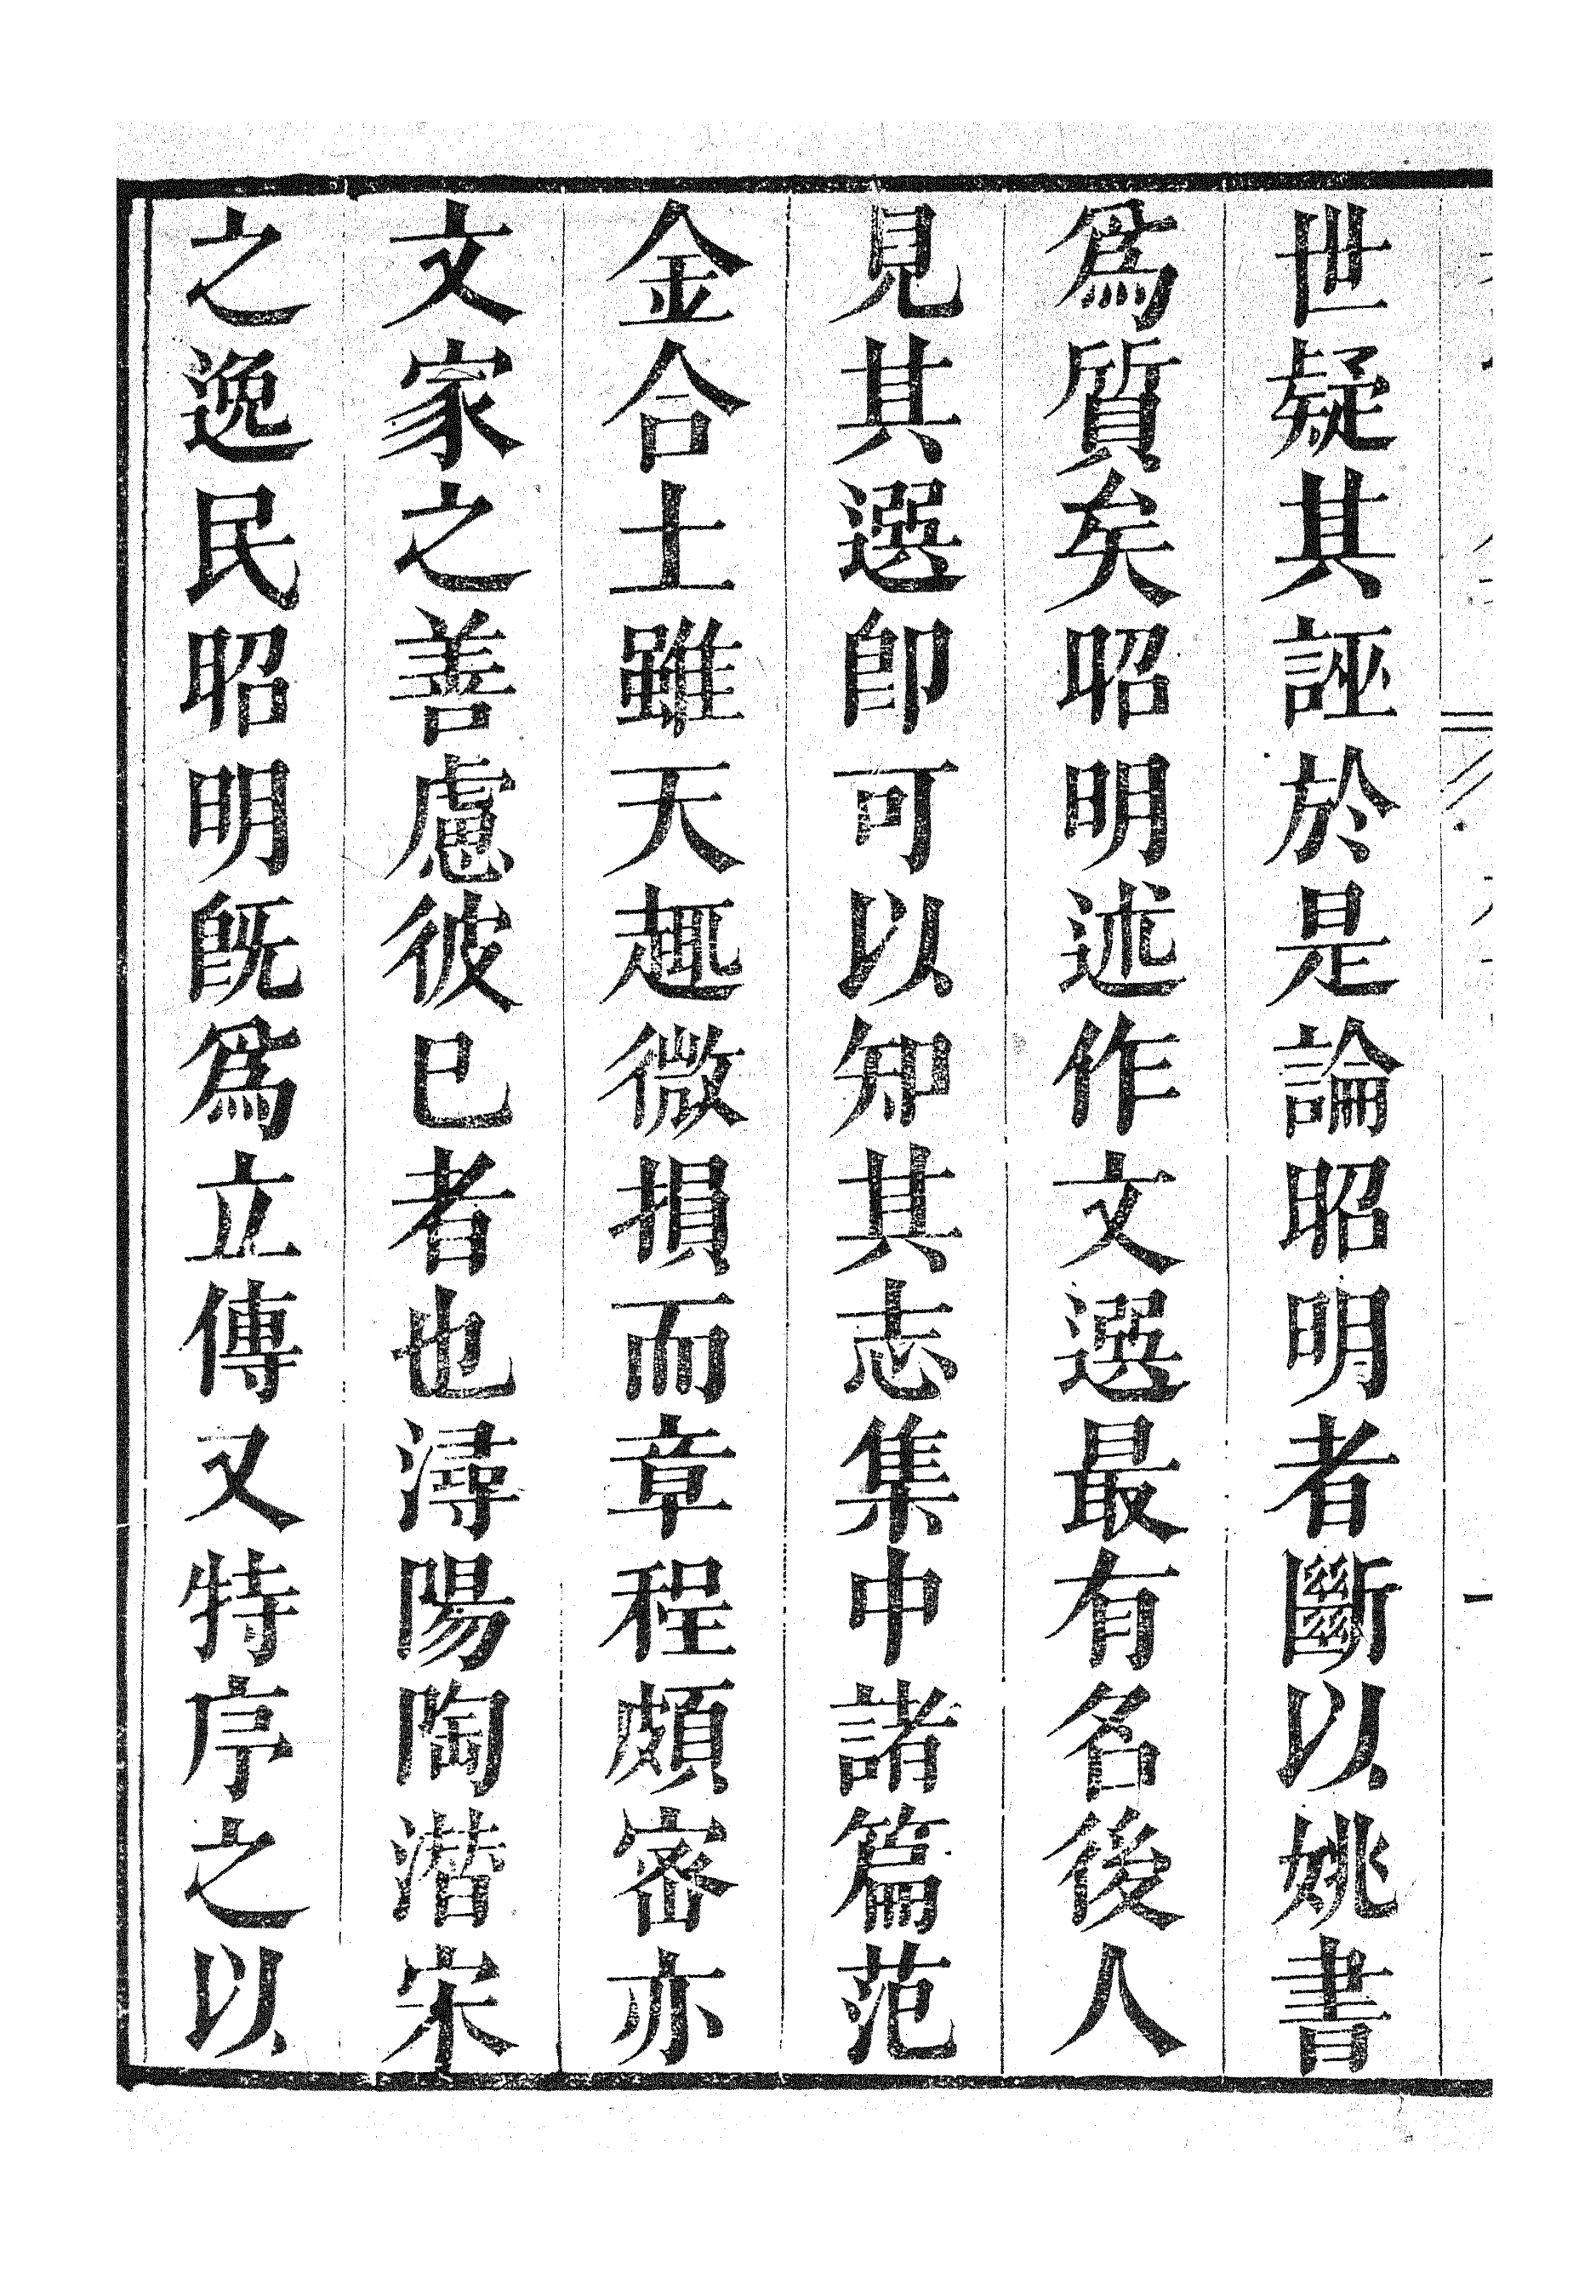 世疑其誣於是論昭明者斷以姚書
爲質矣昭明述作文選最有名後人
見其選卽可以知其志集中諸篇范
金合土雖天趣微損而章程頗密亦
文家之善慮彼巳者也潯陽陶潛宋
之逸民昭明旣爲立傳又特序之以